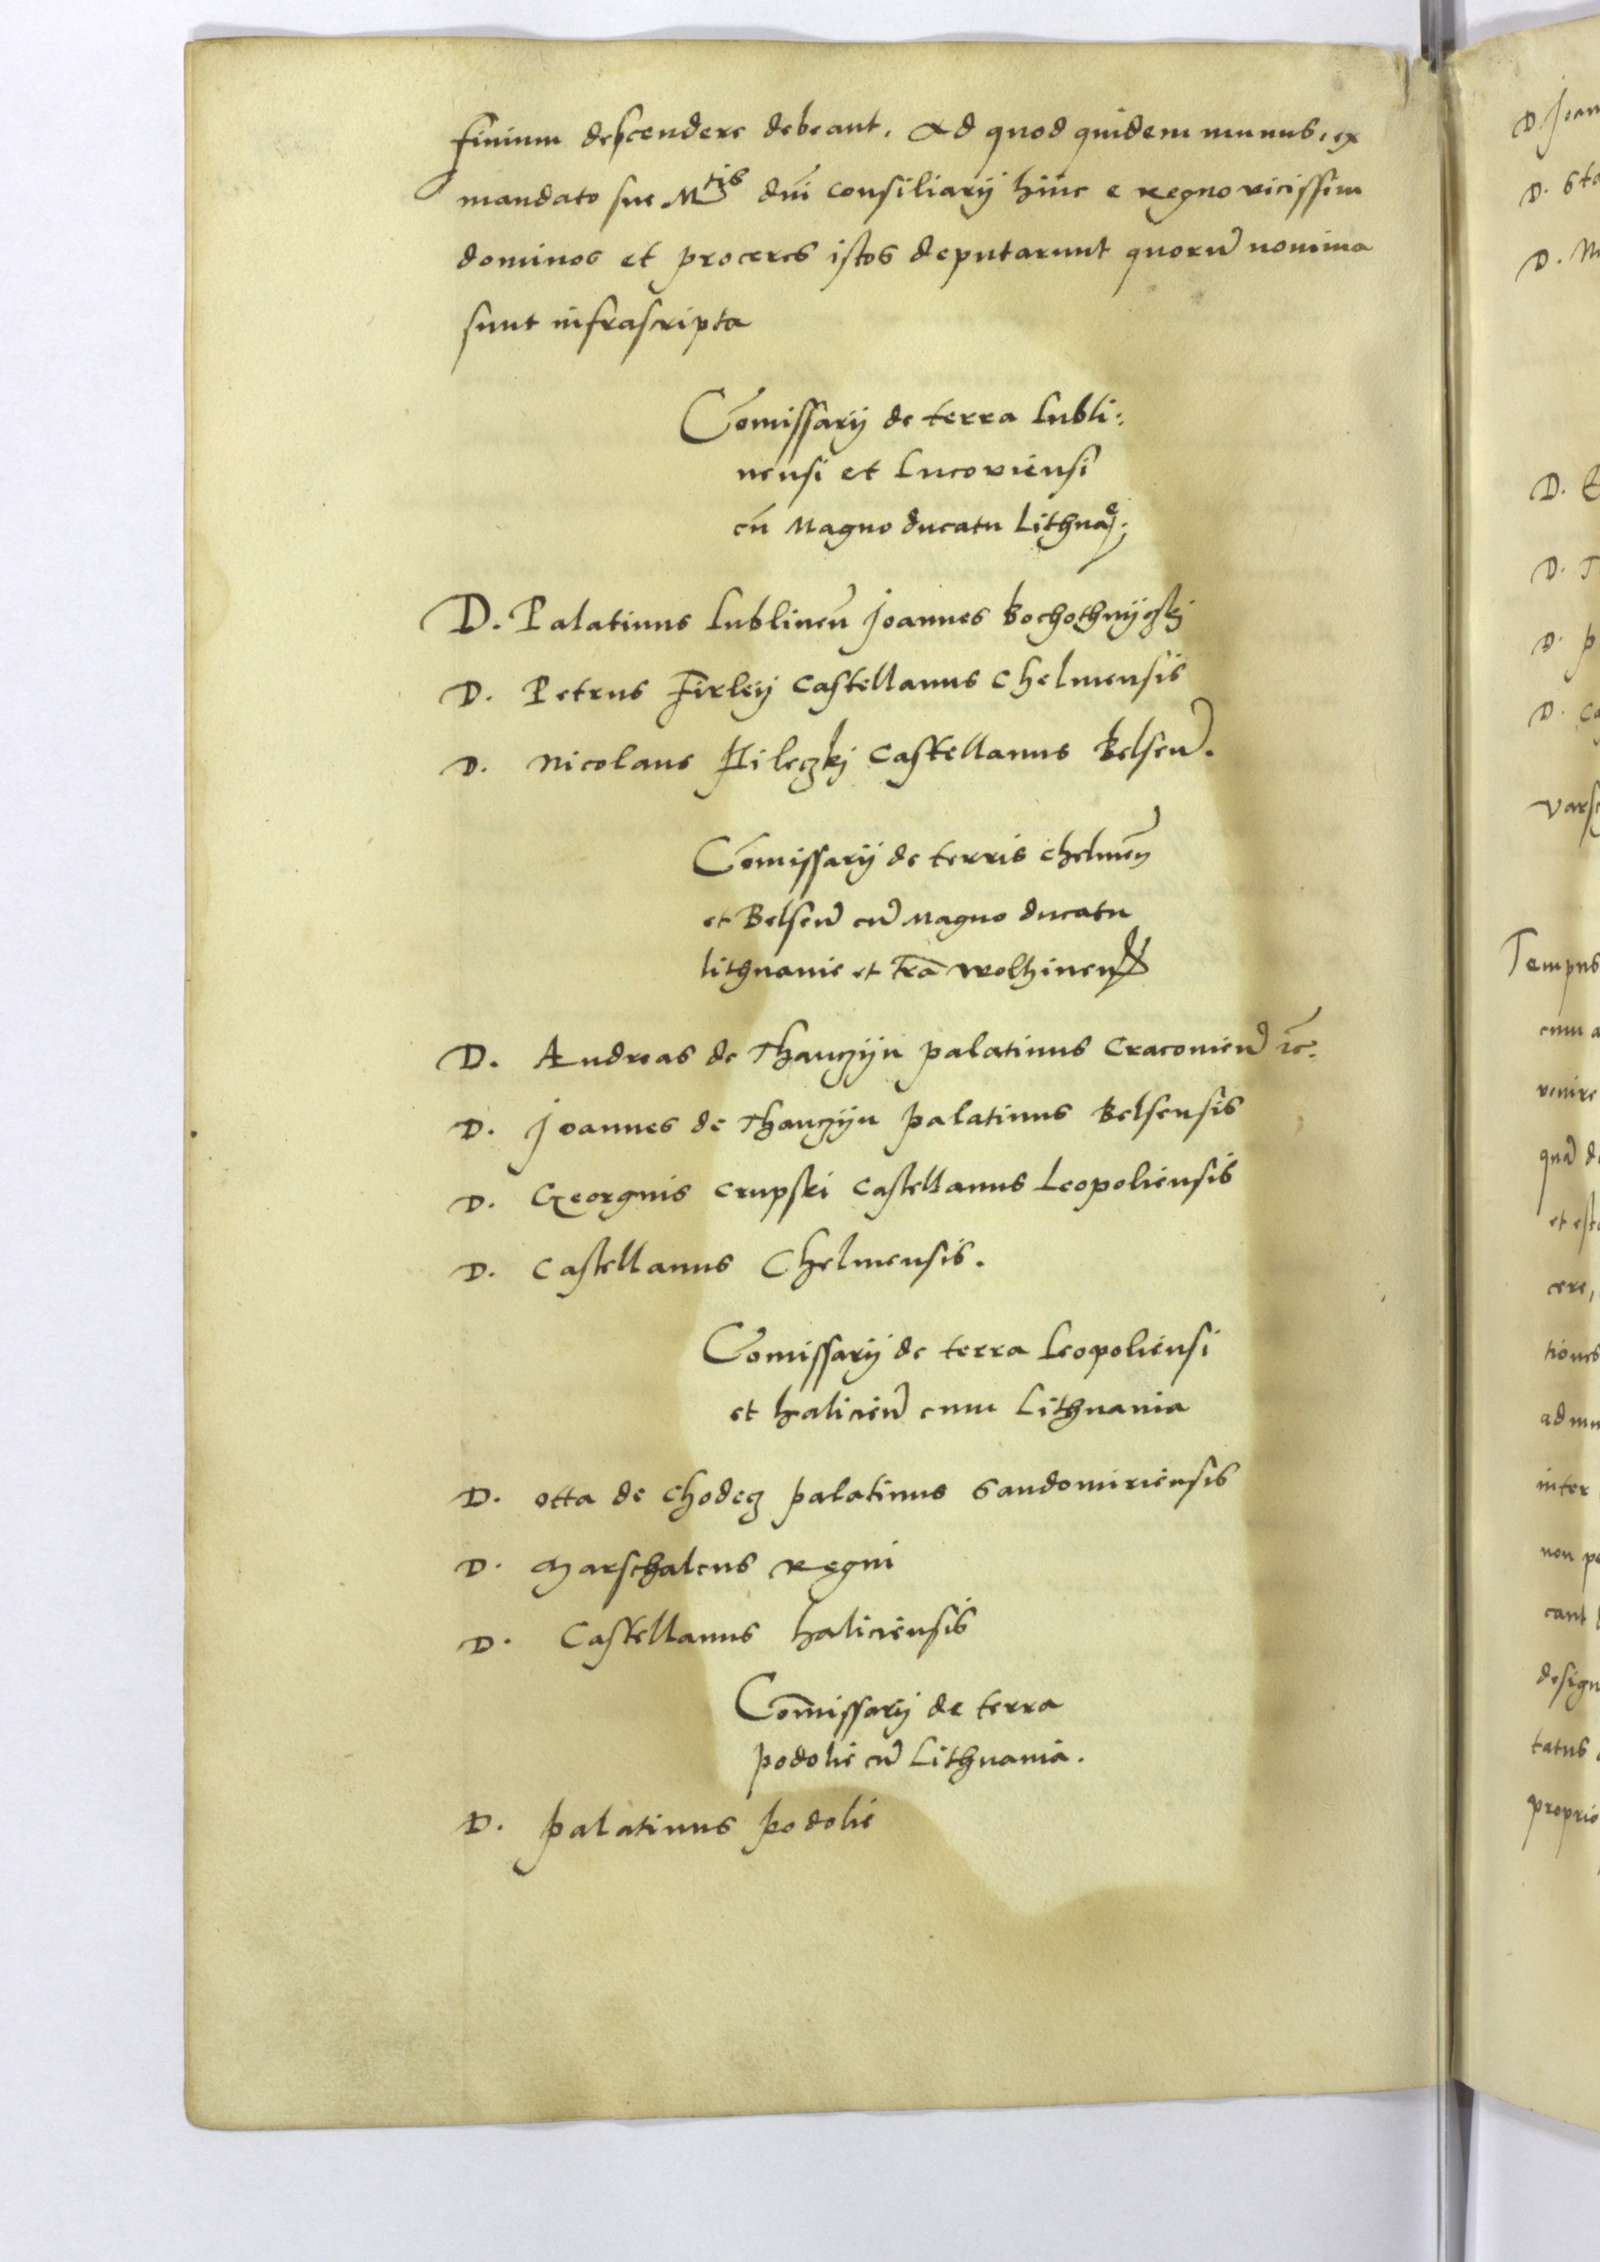 finium descendere debeant. Ad quod quidem munus, ex
mandato sue M^tis dni consiliarij hinc e regno vicissim
dominos et proceres istos deputarunt quoru nomina
sunt infrascripta
Comissarij de terra Lubli:
nensi et Lucoviensi
cu Magno ducatu Lithuae:
D. Palatinus Lublinen Joannes
D. Petrus Firleij Castellanus Chelmensis
D. Nicolaus Pileczkj Castellanus Belsen.
Comissarij de terris Chelmen
et Belsen cu Magno ducatu
lithuanie et tra wolhinen
D. Andreas de Thanczijn palatinus Cracovien etc.
D. Joannes de Thanczijn palatinus Belsensis
D. Georgius Crupski Castellanus Leopoliensis
D. Castellanus Chelmensis.
Comissarij de terra Leopoliensi
et halicien cum Lithuania
D. otta de Chodecz palatinus Sandomiriensis
D. Marschalcus Regni
D. Castellanus haliciensis
Comissarij de terra
podolie cu Lithuania.
D. palatinus podolie
D. Joan
D. Sta
D.
D.
D.
D.
D. Ca
Tempus
cum a
venire
qua
et
cere,
tiones
inter
non
cant
design
tatus
proprio